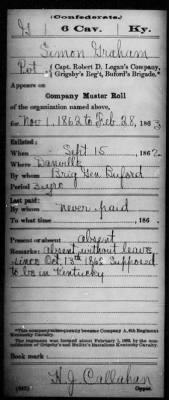 (Confederate.)
G 6 Cav. Ky.
Simon Graham
Pvt., Capt. Robert D. Logan's Company,
Grigsby's Reg't, Buford's Brigade.*
Appears on
Company Muster Roll
of the organization named above,
for Nov 1, 1862 to Feb 28, 1863
Enlisted:
When Sept 15, 1862
Where Danville
By whom Brig Gen Buford
Period 3 yrs
Last paid:
By whom never paid
To what time , 186 .
Present or absent absent
Remarks: absent without leave
since Oct 13th 1862 supposed
to be in Kentucky
*This company subsequently became Company A, 6th Regiment
Kentucky Cavalry.
The regiment was formed about February 1, 1863, by the con-
solidation of Grigsby's and Battalions Kentucky Cavalry.
Book mark:
H. J. Callahan
Copyist.